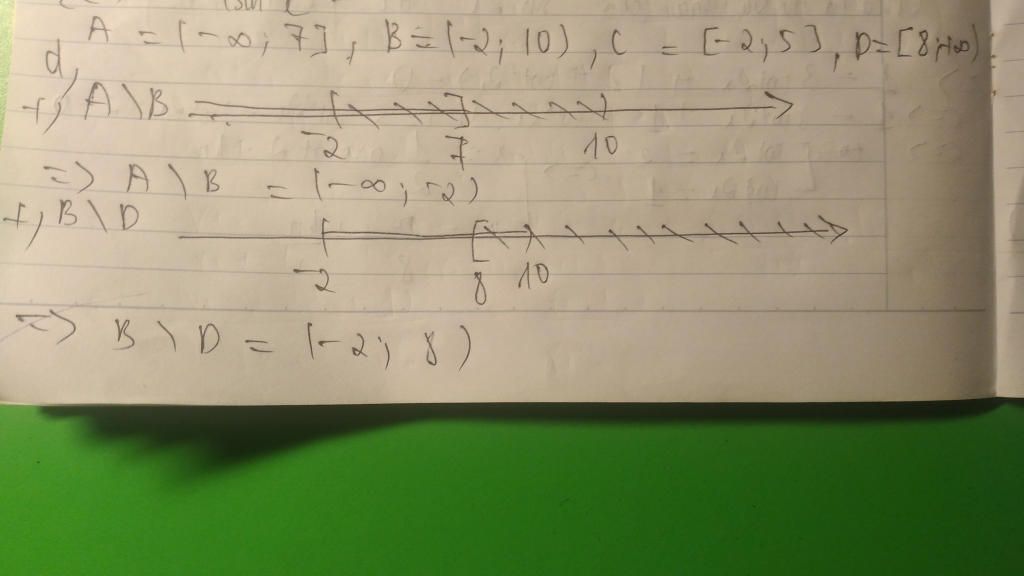 A = (-∞; 7], B = (-2; 10), C = [-2; 5], D = [8; +∞)
d,
+, A \ B
-2 7 10
=> A \ B = (-∞; -2)
+, B \ D
-2 8 10
=> B \ D = (-2; 8)